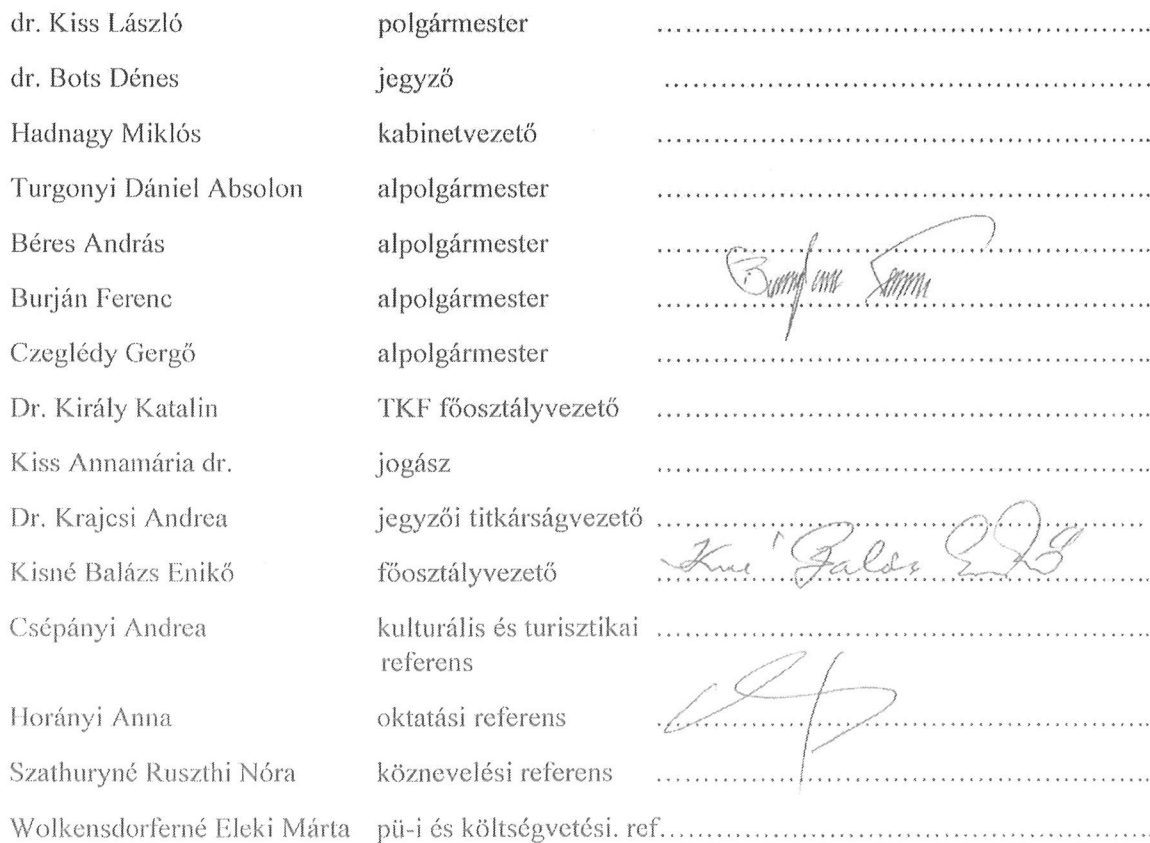 dr. Kiss László polgármester ........................................................
dr. Bots Dénes jegyző ........................................................
Hadnagy Miklós kabinetvezető ........................................................
Turgonyi Dániel Absolon alpolgármester ........................................................
Béres András alpolgármester ........................................................
Burján Ferenc alpolgármester ........................................................
Czeglédy Gergő alpolgármester ........................................................
Dr. Király Katalin TKF főosztályvezető ........................................................
Kiss Annamária dr. jogász ........................................................
Dr. Krajcsi Andrea jegyzői titkárságvezető ........................................................
Kisné Balázs Enikő főosztályvezető ........................................................
Csépányi Andrea kulturális és turisztikai ........................................................
referens
Horányi Anna oktatási referens ........................................................
Szathuryné Ruszthi Nóra köznevelési referens ........................................................
Wolkensdorferné Eleki Márta pü-i és költségvetési. ref........................................................